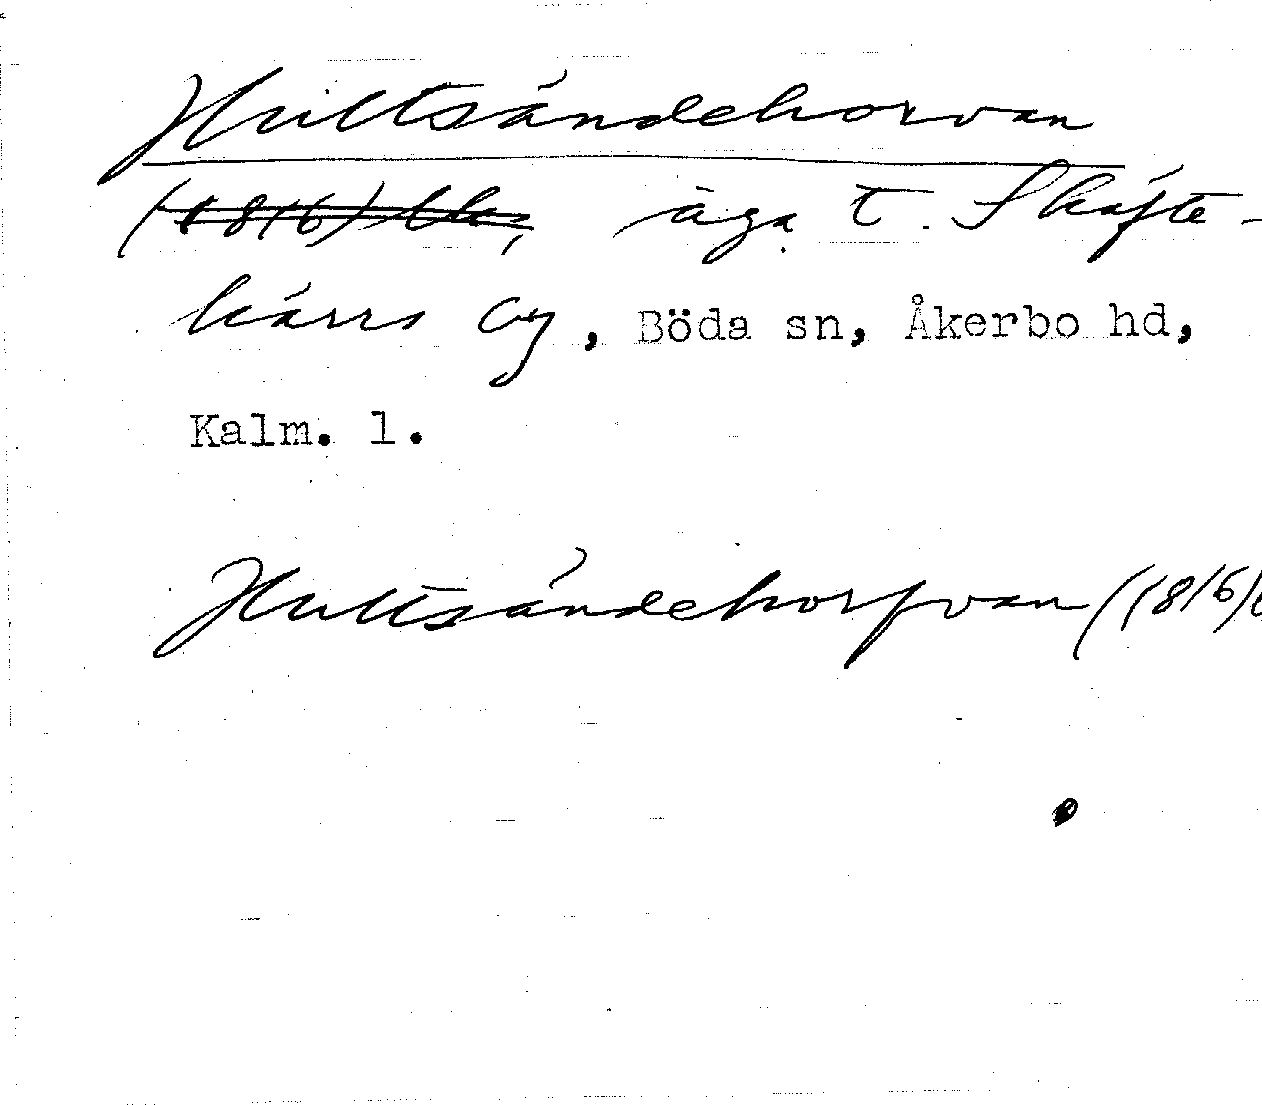 Hultsändehorvan
(1816) äga t. Skäfte-
kärrs by, Böda sn, Åkerbo hd,
Kalm. l.
Hultsändehorfvan (1816)